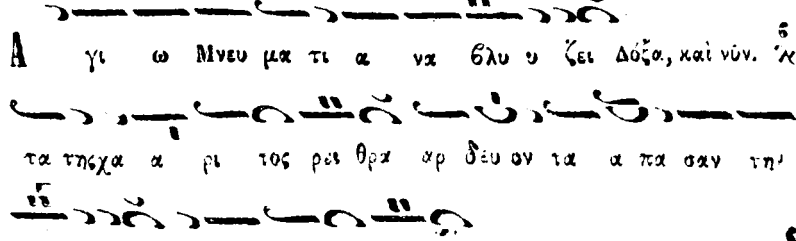 Α γι ω Πνευ μα τι α να βλυ υ ζει Δόξα, καὶ νῦν.
τα τηςχα α ρι τος ρει θρα αρ δευ ον τα α πα σαν τη